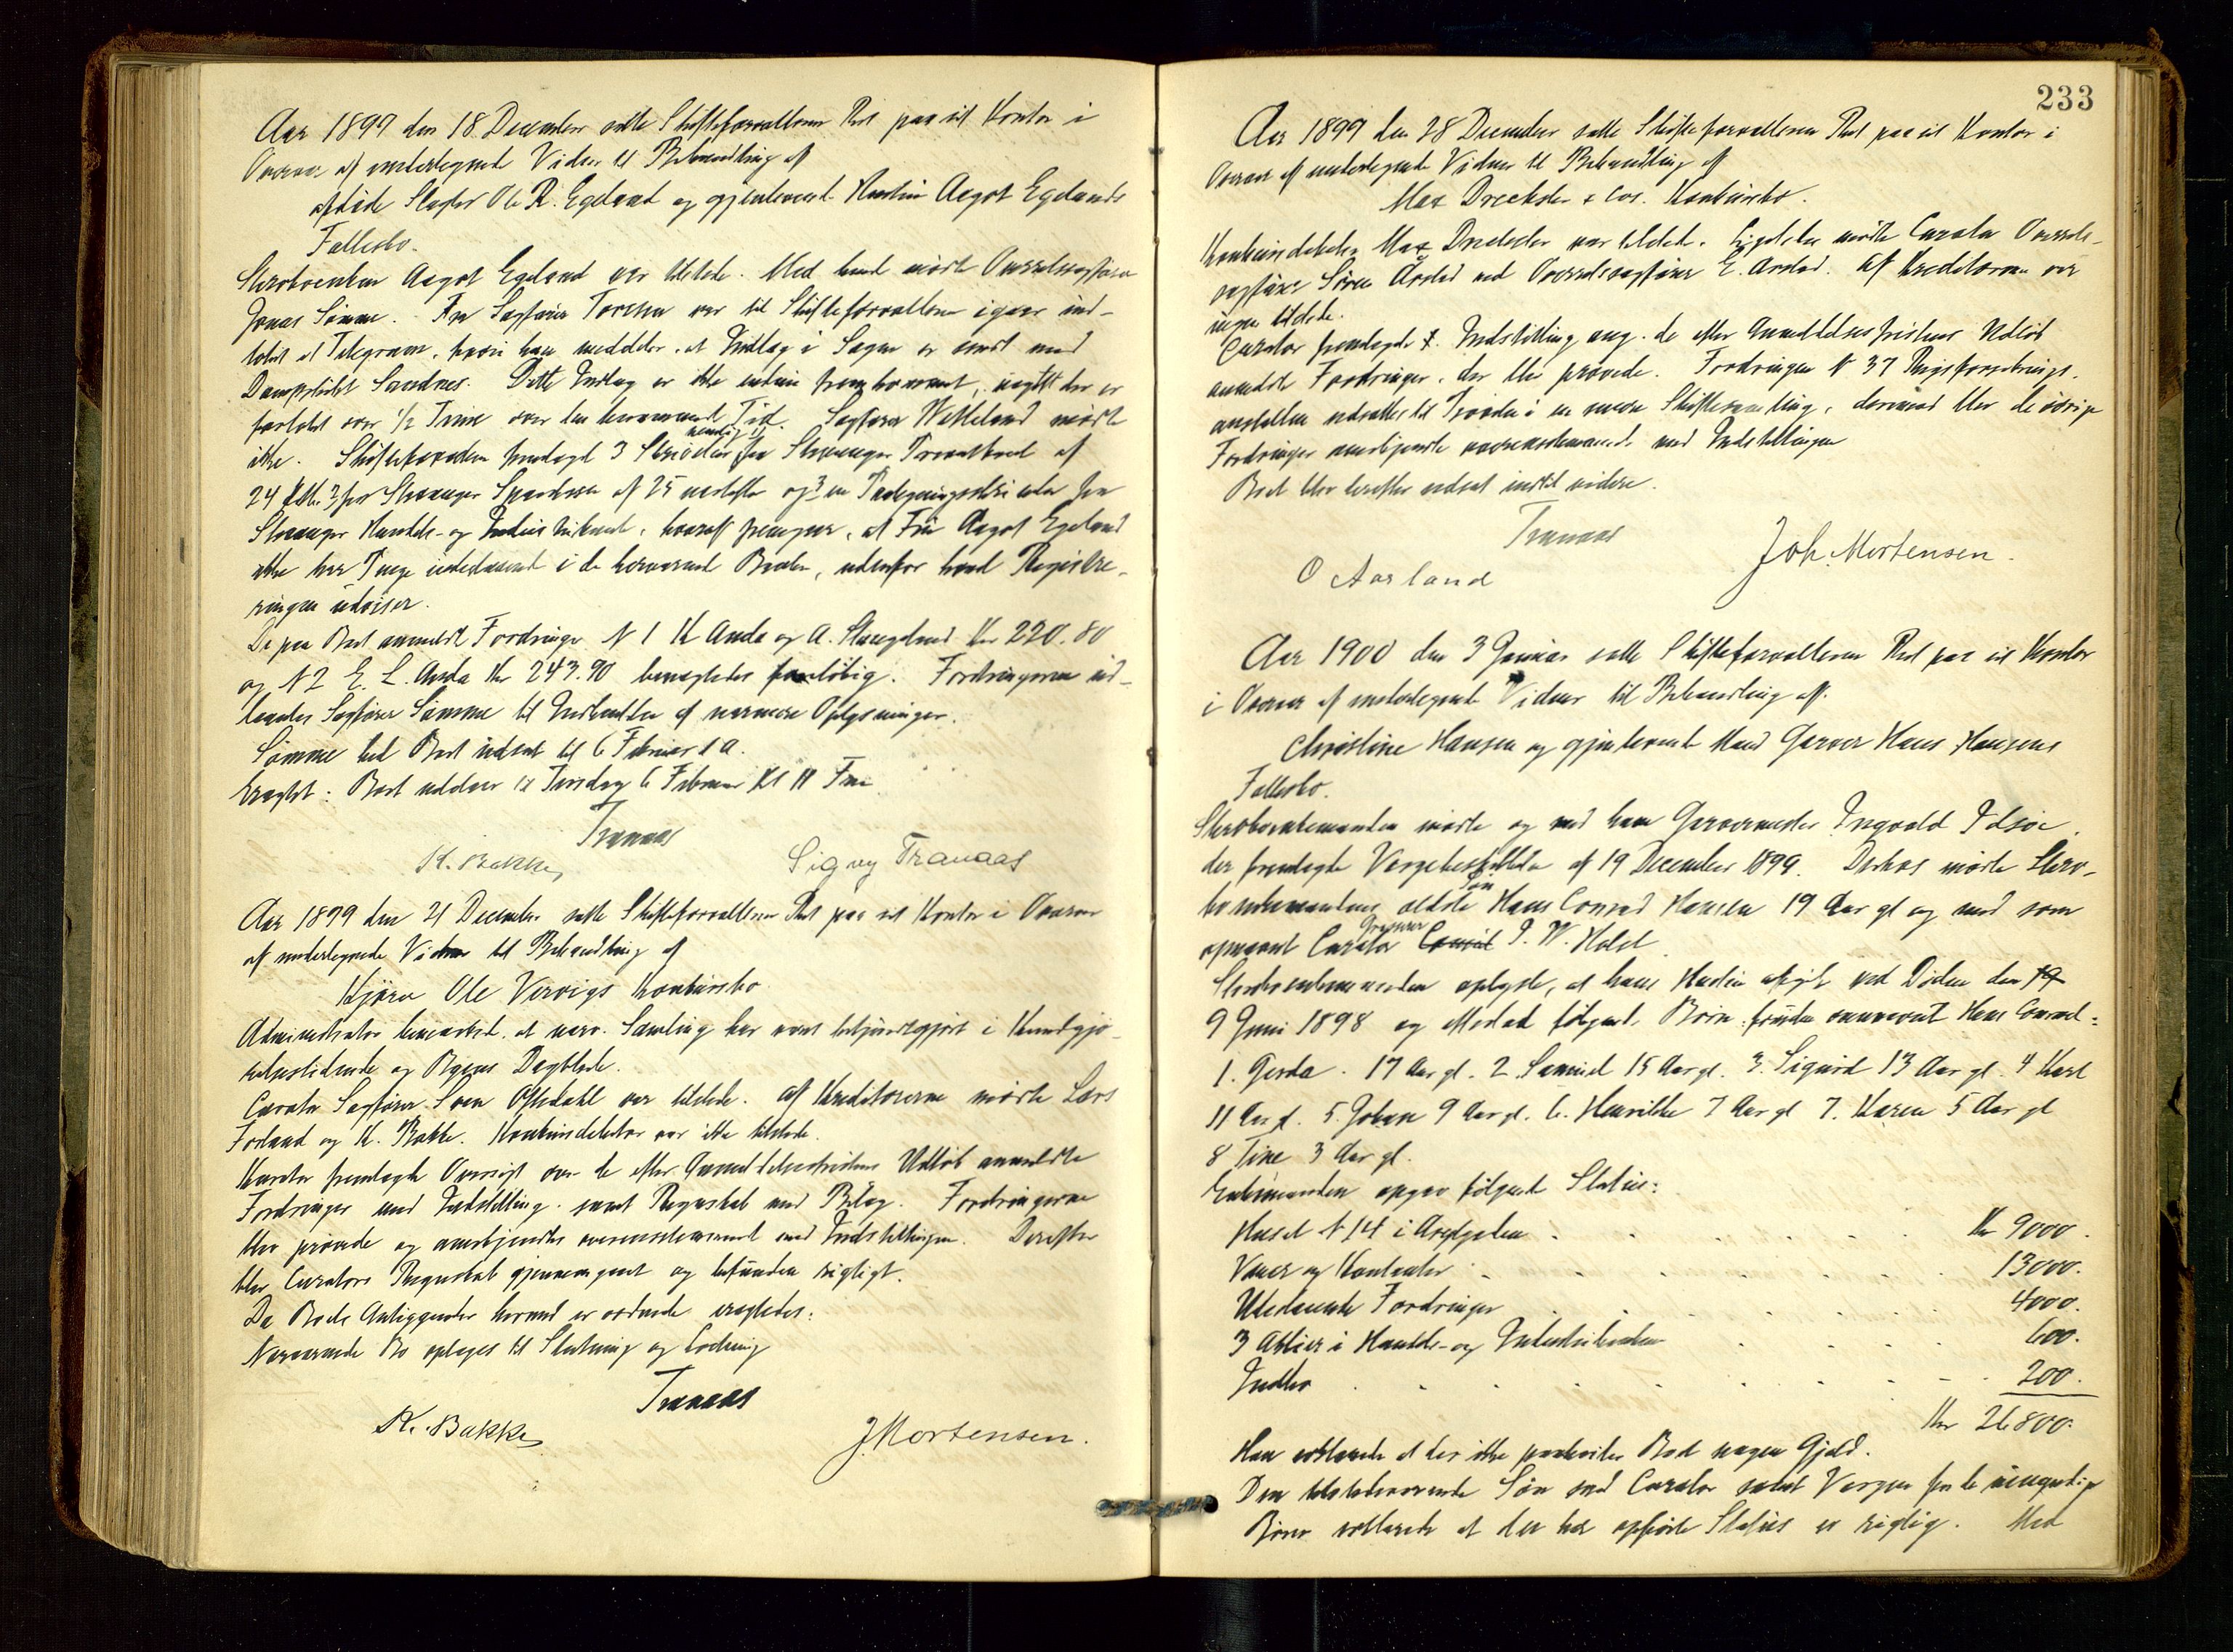 Aar 1899 den 18 December satte Skifteforvalteren Ret paa sit Kontor i
Overvær af undertegnede Vidner til Behandling af
afdøde Slagter Ole R. Egeland og gjenlevende Hustru Aagot Egelands
Fællesbo.
Skrøbeenken Aagot Egeland var tilstede. Med hende mødte Overretssagfører
Jonas Sømme. Fra Sagfører var til Skifteforvalteren igaar ind-
løbet et Telegram, hvori han meddeler, at Indlæg i Sagen er sendt med
Dampskibet Sandnes. Dette Indlæg er ikke endnu fremkommet, uagtet der er
forløbet over 1/2 Time over den berammede Tid. Sagfører mødte
ikke. Skifteforvalteren fremlagde 3 Skrivelser nemlig 1) fra Stavanger Privatbank af
24 2) fra Stavanger Sparekasse af 25 og 3) en fra
Stavanger Handels- og Industribank, hvoraf fremgaar, at Fru Aagot Egeland
ikke har Penge indestaaende i de herværende Banker, udenfor hvad Registre-
ringen udviser.
De paa Boet anmeldte Fordringer N 1 K Anda og A. Kr 220.80
og N 2 E. L. Anda Kr 243.90 benægtedes foreløbig. Fordringerne ud-
laantes Sagfører Sømme til Indhentelse af nærmere Oplysninger.
Sømme bad Boet udsat til 6 Februar d. A.
Eragtet: Boet udsættes til Tirsdag 6 Februar Kl 11 Fm
Tranaas
K. Bakke Signy Tranaas
Aar 1899 den 21 December satte Skifteforvalteren Ret paa sit Kontor i Overvær
af undertegnede Vidner til Behandling af
Kjøbm Ole Vervigs Konkursbo
Administrator bemærked, at nærv. Samling har været bekjendtgjort i Kundgjø-
relsestidende og Byens Dagblade.
Curator Sagfører Sven Oftedahl var tilstede. Af Kreditorerne mødte Lars
Forland og K. Bakke. Konkursdebitor var ikke tilstede.
Kurator fremlagde Oversigt over de efter Anmeldelsesfristens Udløb anmeldte
Fordringer med Indstilling samt Regnskab med Bilag. Fordringerne
blev prøvede og anerkjendte overensstemmende med Indstillingen. Derefter
blev Curators Regnskab gjennemgaaet og befunden rigtigt.
Da Boets Anliggender hermed er ordnede eragtedes:
Nærværende Bo optages til Slutning og Lodning
Tranaas
K. Bakke J Mortensen.
233
Aar 1899 den 28 December satte Skifteforvalteren Ret paa sit Kontor i
Overvær af undertegnede Vidner til Behandling af
Max Drecksler & Cos. Konkursbo.
Konkursdebitor Max Drecksler var tilstede. Ligeledes mødte Curator Overrets-
sagfører Søren Årstad ved Overretssagfører E. Årstad. Af Kreditorerne var
ingen tilstede.
Curator fremlagde Indstilling ang. de efter Anmeldelsesfristens Udløb
anmeldte Fordringer, der blev prøvede. Fordringen N 37 Rigsforsikrings-
anstalten udsattes til Prøvelse i en senere Skiftesamling, derimod blev de øvrige
Fordringer anerkjendte overensstemmende med Indstillingen
Boet blev derefter udsat indtil videre.
Tranaas
O Aarland Joh. Mortensen.
Aar 1900 den 3 Januar satte Skifteforvalteren Ret paa sit Kontor
i Overvær af undertegnede Vidner til Behandling af
Christine Hansen og gjenlevende Mand Garver Hans Hansens
Fællesbo.
Skrøbeenkemanden mødte og med ham Garvermester Ingvald Idsøe
der fremlagde Vergebeskikkelse af 19 December 1899. Derhos mødte Skrø-
beenkemandens ældste Søn Hans Conrad Hansen 19 Aar gl og med som
opnævnt Curator Grosserer Consul P. W. Holst
Skrøbeenkemanden oplyste, at hans Hustru afgik ved Døden den 19
9 Juni 1898 og efterlod følgende Børn foruden ovennævnt Hans Conrad:
1. Gerda 17 Aar gl. 2. Samuel 15 Aar gl. 3. Sigurd 13 Aar gl. 4 Karl
11 Aar gl. 5. Johan 9 Aar gl. 6. Henrikke 7 Aar gl 7. Karen 5 Aar gl
8 Tine 3 Aar gl.
Enkemanden opgav følgende Status:
Huset N 14 i Kr 9000.
Varer og Kontanter 13000.
Udestaaende Fordringer 4000.
3 Aktier i Handels- og Industribanken 600.
Indbo 200.
Kr 26800.
Han erklærede at der ikke paahviler Boet nogen Gjæld.
Den tilstedeværende Søn med Curator samt Vergen for de umyndige
Børn erklærede at den her opførte Status er rigtig. Med